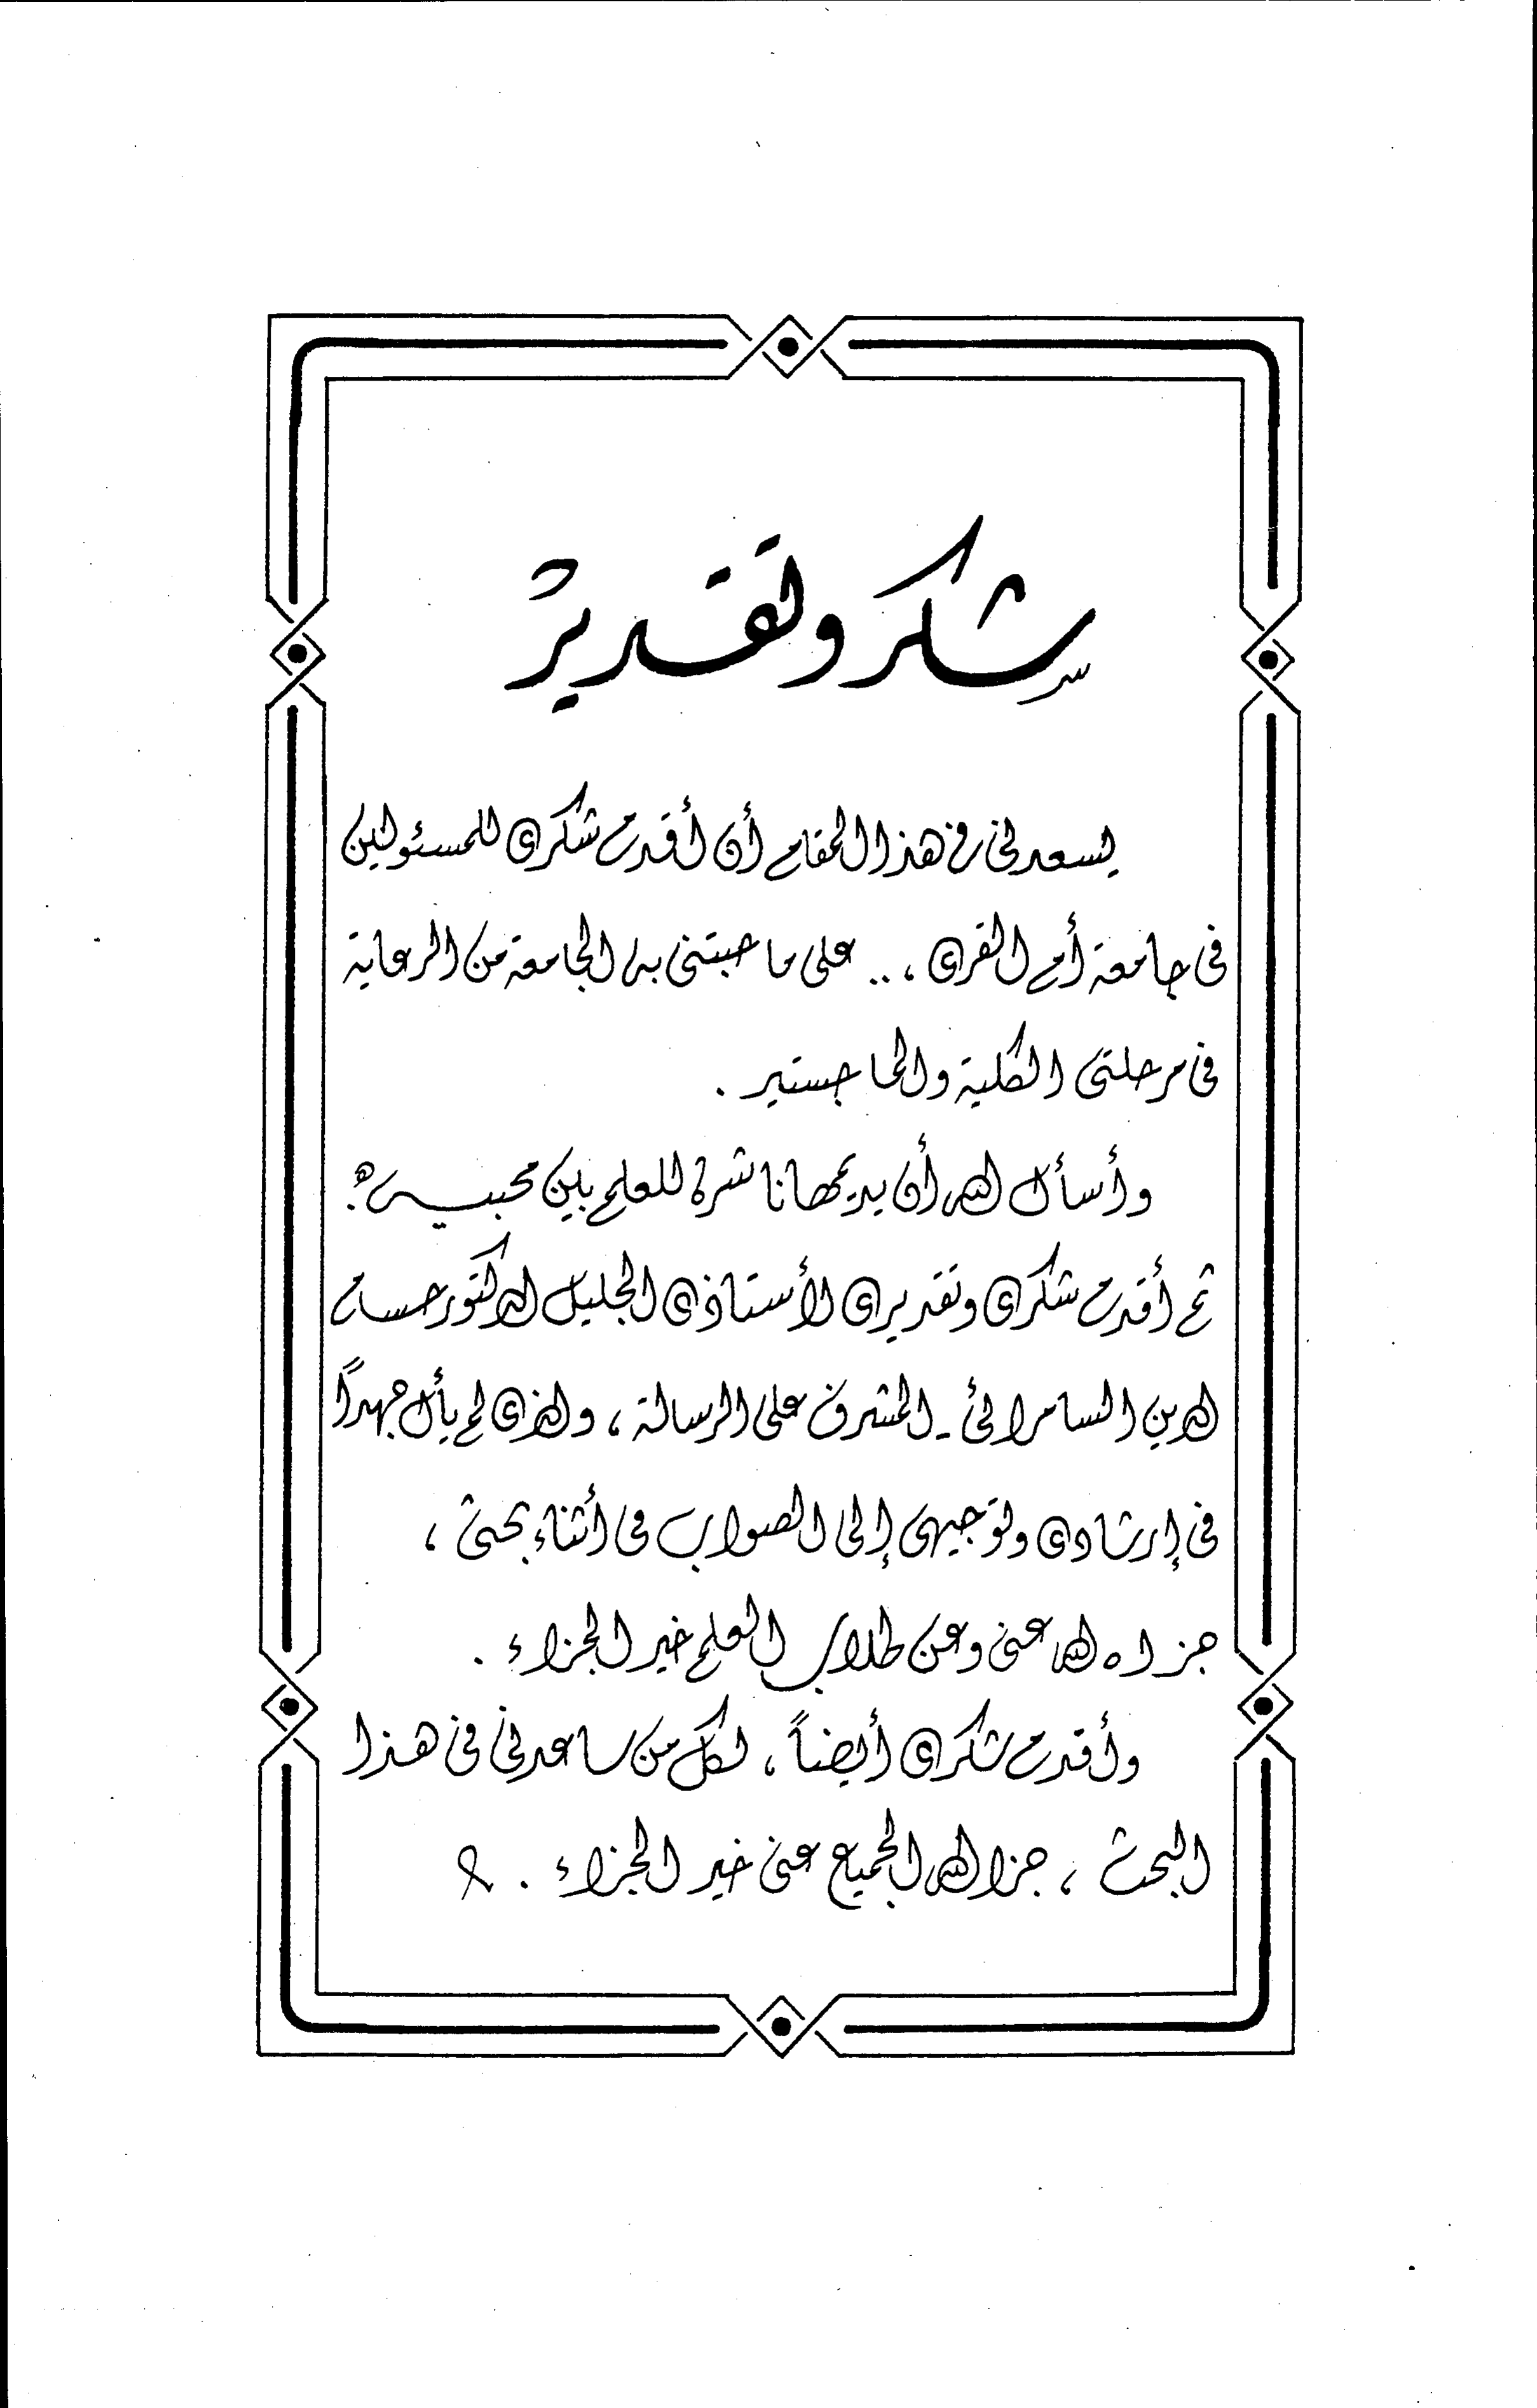 شكر وتقدير
يسعدني في هذا المقام أن أقدم شكري للمسئولين
في جامعة أم القرى ،.. على ما حبتني به الجامعة من الرعاية
في مرحلتي الكلية والماجستير .
وأسأل الله أن يديمها ناشرة للعلم بين محبيه .
ثم أقدم شكري وتقديري لأستاذي الجليل الدكتور حسام
الدين السامرائي - المشرف على الرسالة ، والذي لم يأل جهداً
في إرشادي وتوجيهي إلى الصواب في أثناء بحثي ،
جزاه الله عني وعن طلاب العلم خير الجزاء .
وأقدم شكري أيضاً ، لكل من ساعدني في هذا
البحث ، جزا الله الجميع عني خير الجزاء .